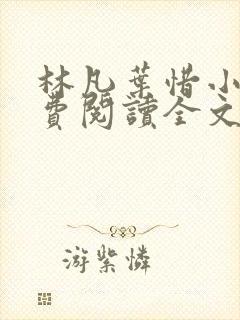 林凡葉惜小
費閱讀全文
游紫憐